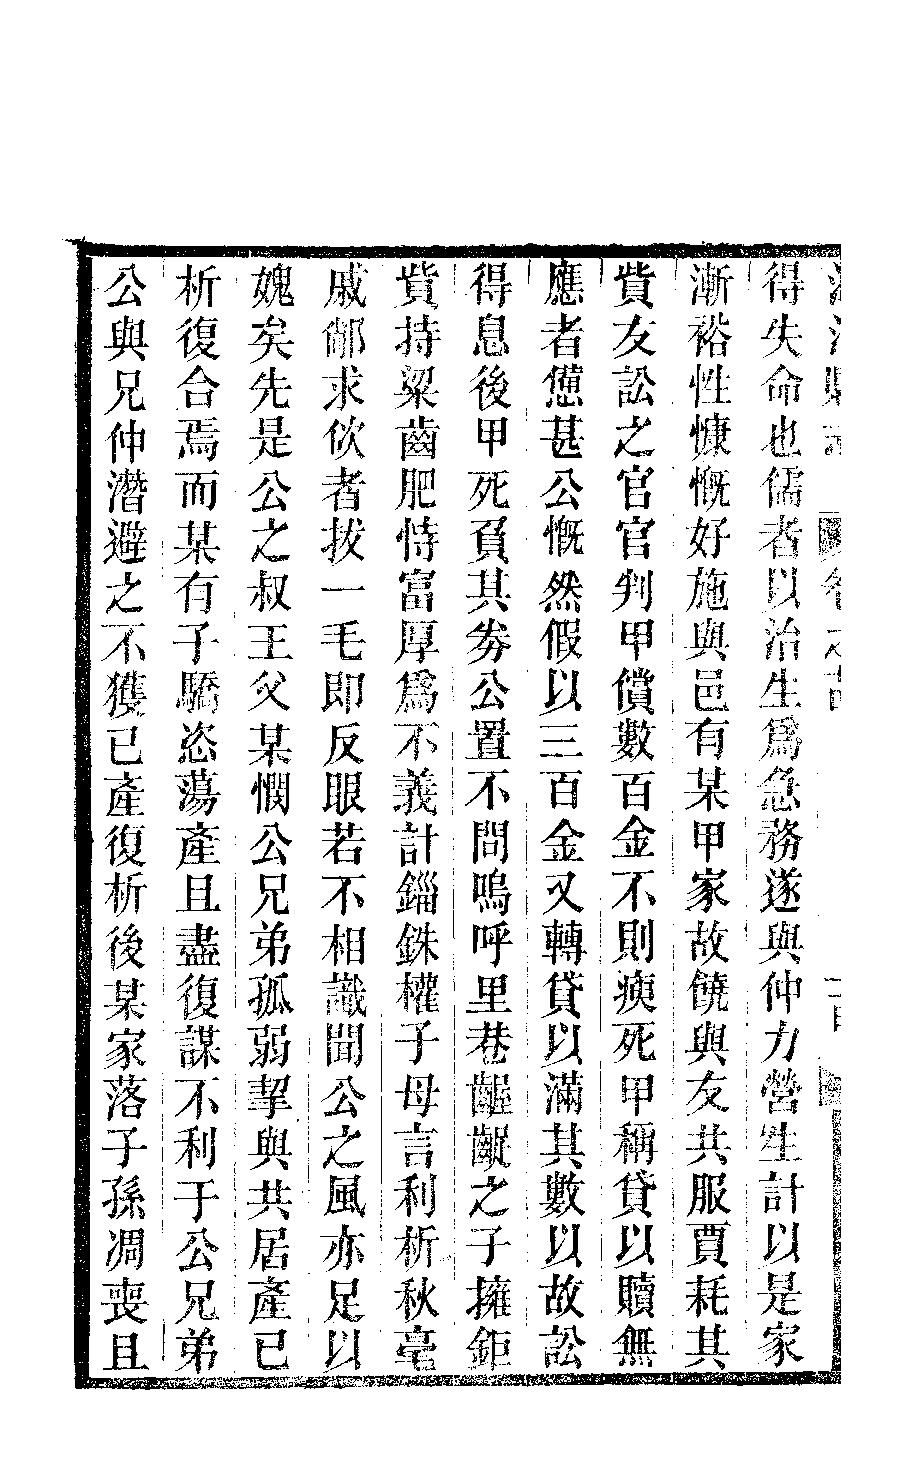 得失命也儒者以治生爲急務遂與仲力營生計以是家
漸裕性慷慨好施與邑有某甲家故饒與友共服賈耗其
貲友訟之官官判甲償數百金不則瘐死甲稱貸以贖無
應者憊甚公慨然假以三百金又轉貸以滿其數以故訟
得息後甲死負其劵公置不問嗚呼里巷齷齪之子擁鉅
貲持粱齒肥恃富厚爲不義計錙銖權子母言利析秋毫
戚鄰求佽者拔一毛即反眼若不相識聞公之風亦足以
媿矣先是公之叔王父某憫公兄弟孤弱挈與共居產已
析復合焉而某有子驕恣蕩產且盡復謀不利于公兄弟
公與兄仲潛避之不獲已產復析後某家落子孫凋喪且